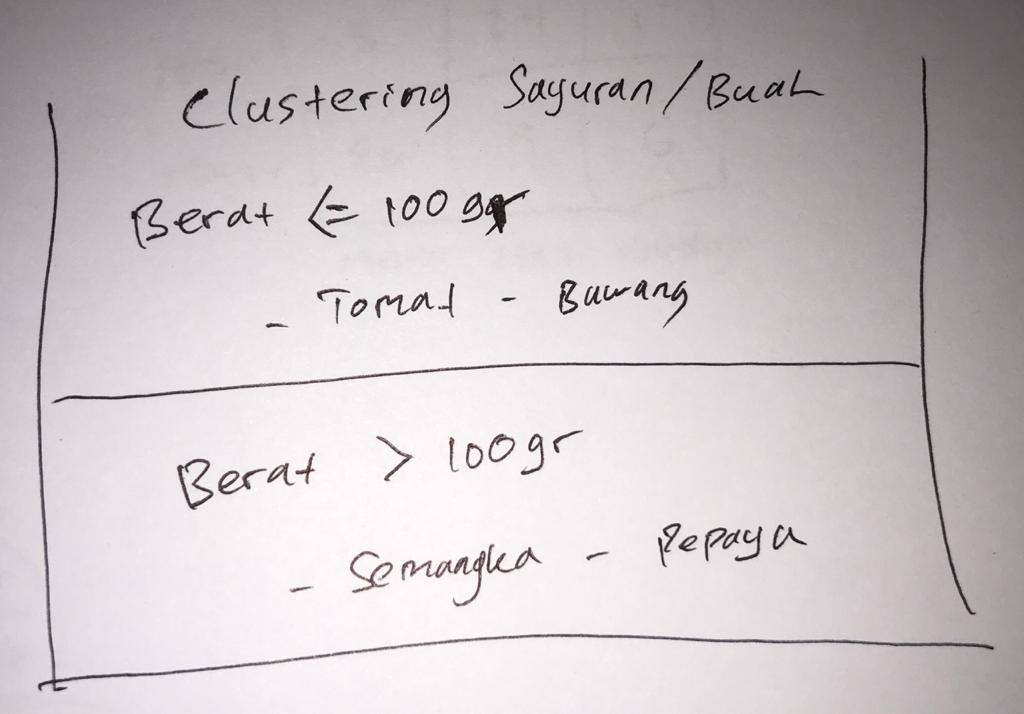 Clustering Sayuran/Buah
Berat <= 100 gr
- Tomat - Bawang
Berat > 100gr
- Semangka - Pepaya